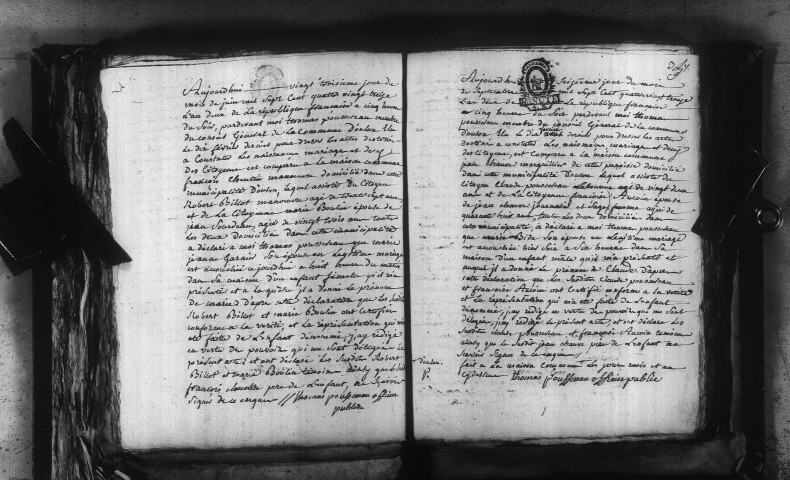 Aujourdhui vingt troisieme jour de
mois de juin mil Sept Cent quatre vingt treize
L'an deux de la republique francaise a cinq heure
du Soir, pardevant moi thomas pousseau membre
du conseil General de la Commune Doulon Elu
Le dix fevrier dernier pour dresser les actes destinés
a Constater Les naissances mariage et decès
des Citoyens est comparu a la maison commune
francois cloutier manoeuvre domicilié dans cette
municipalité Doulon, lequel assisté du Citoyen
Robert Billot manoeuvre agé de
et de La Citoyenne marie Boulin épouse de
jean Sourdeau, agée de vingt trois ans toute
Les deux Domiciliés dans cette municipalité
a déclaré a moi thomas pousseau que marie
jeanne Garnier Son épouse en Legitime mariage
est accouchée ce jourdhui a huit heure du matin
dans Sa maison d'un enfant femelle qu'il m'a
présenté et a La quelle il a donné Le prénom
de marie D'apres cette déclaration que Les Susdits
Robert Billot et marie Boulin ont Certifié
conforme a la verité, et La représentation qui m'a
eté faite de L'enfant denommé, j'ay rédigé
en vertu du pouvoir qui me Sont délégué Le
présent acte, et ont déclaré Les Susdits Robert
Billot et marie Boulin témoins ainsy que le Susdit
francois cloutier pere de L'enfant, ne Scavoir
Signés de ce enquis // thomas pousseau officier
publie
Aujourdhui Seizieme jour du mois
de Septembre mil Sept Cent quatre vingt treize
L'an deux de La république francaise
a cinq heure du Soir pardevant moi thomas
pousseau membre du conseil General de la commune
Doulon Elu Le dix fevrier dernier pour dresser Les actes
destiné a constater Les naissances mariage et decès
des Citoyens, est Comparu a La maison commune
jean chauve domicilié
dans cette municipalité Doulon Lequel assisté du
Citoyen Claude pousseau Laboureur agé de vingt deux
ans et de La Citoyenne francoise Aucoin épouse
de jean chauve journalier et Sage femme agée de
quarante huit ans, toute Les deux domicilier dans
cette municipalité, a déclaré a moi thomas pousseau
que marie Bide Son épouse en Legitime mariage
est accouchée hier a Six heure dans Sa
maison d'un enfant male qu'il m'a présenté et
auquel il a donné Le prénom de Claude D'apres
cette déclaration que Les Susdits Claude pousseau
et francoise Aucoin ont Certifié conforme a La verité
et La représentation qui m'a eté faite de L'enfant
dénommé, j'ay rédigé en vertu du pouvoir qui me Sont
délégué, j'ay rédigé Le présent acte, et ont déclaré Les
Susdits Claude pousseau et francoise Aucoin témoins
ainsy que Le Susdit jean chauve pere de L'enfant ne
Scavoir Signés de ce enquis //
fait a La maison Commune Les jours mois et an
cydessus thomas pousseau officier publie